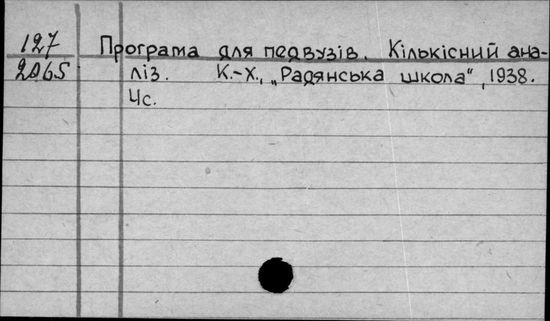 127 Програма для педвузів. Кількісний ана-
2065 ліз. К.-Х., „Радянська школа“, 1938.
4с.